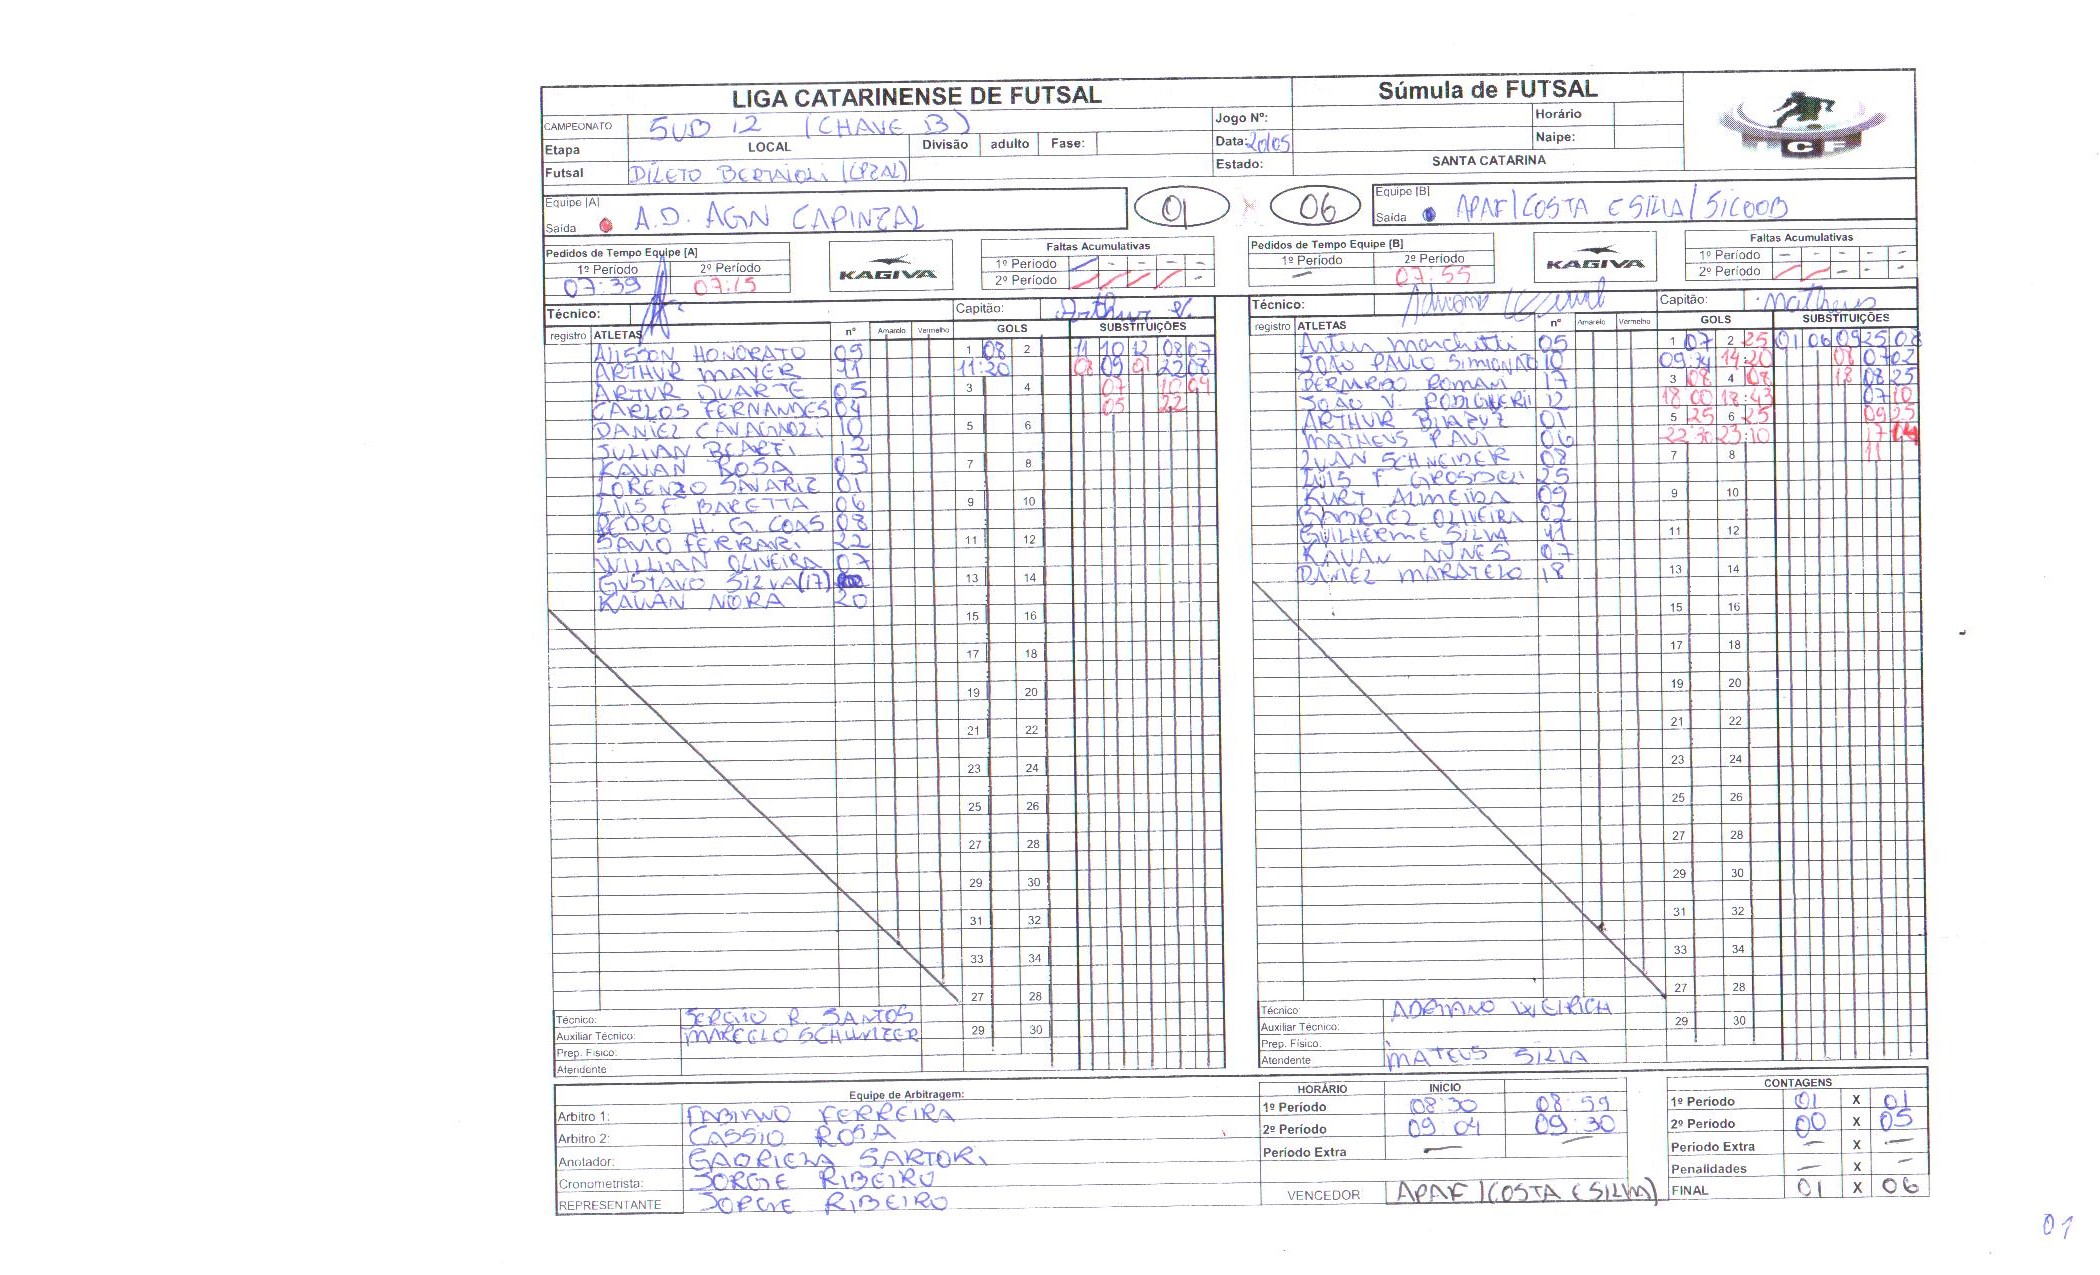 LIGA CATARINENSE DE FUTSAL
Súmula de FUTSAL
CAMPEONATO SUB 12 (CHAVE B)
Jogo Nº:
Horário
Etapa LOCAL Divisão adulto Fase:
Data: 20/05
Naipe:
Futsal DILETO BERTAIOLI (CPZAL)
Estado: SANTA CATARINA
TCF
Equipe [A]
Saída A.D. AGN CAPINZAL
01 X 06
Equipe [B]
Saída APAF/COSTA E SILVA/SICOOB
Pedidos de Tempo Equipe [A]
1º Período 2º Período
07:39 07:15
KAGIVA
Faltas Acumulativas
1º Período
2º Período
Pedidos de Tempo Equipe [B]
1º Período 2º Período
— 07:55
KAGIVA
Faltas Acumulativas
1º Período
2º Período
Técnico: Capitão: Arthur
registro ATLETAS nº Amarelo Vermelho GOLS SUBSTITUIÇÕES
ALISSON HONORATO 09 1 08 2 11 10 12 08 07
ARTHUR MAYER 11 11:20 08 09 01 22 08
ARTUR DUARTE 05 3 4 07 10 09
CARLOS FERNANDES 04 05 22
DANIEL CAVAGNOLI 10 5 6
JULIAN 12
KAUAN ROSA 03 7 8
LORENZO SAVARIZ 01
LUIS F BARETTA 06 9 10
PEDRO H. G. 08
SAVIO FERRARI 22 11 12
WILLIAN OLIVEIRA 07
GUSTAVO SILVA (17) 13 14
KAUAN NORA 20
15 16
17 18
19 20
21 22
23 24
25 26
27 28
29 30
31 32
33 34
27 28
29 30
Técnico: SERGIO R. SANTOS
Auxiliar Técnico: MARCELO
Prep. Físico:
Atendente
Técnico: Adriano Capitão: Matheus
registro ATLETAS nº Amarelo Vermelho GOLS SUBSTITUIÇÕES
Artur Marchetti 05 1 07 2 25 01 06 09 25 08
JOÃO PAULO 10 09:34 14:20 08 07 02
BERNARDO ROMAN 17 3 08 4 08 18 08 25
JOÃO V. 12 18:00 18:43 07 10
ARTHUR 01 5 25 6 25 09 25
MATHEUS PAUL 06 22:30 23:10 17
LUAN SCHNEIDER 08 7 8 11
LUIS F. 25
KURT ALMEIDA 09 9 10
GABRIEL OLIVEIRA 02
GUILHERME SILVA 11 11 12
KAUAN NUNES 07
DANIEL 18 13 14
15 16
17 18
19 20
21 22
23 24
25 26
27 28
29 30
31 32
33 34
27 28
29 30
Técnico: ADRIANO WEIRICH
Auxiliar Técnico:
Prep. Físico:
Atendente MATEUS SILVA
Equipe de Arbitragem:
Arbitro 1: FABIANO FERREIRA
Arbitro 2: CASSIO ROSA
Anotador: GABRIELA SARTORI
Cronometrista: JORGE RIBEIRO
REPRESENTANTE JORGE RIBEIRO
HORÁRIO INÍCIO
1º Período 08:30 08:59
2º Período 09:04 09:30
Período Extra —
VENCEDOR APAF/(COSTA E SILVA)
CONTAGENS
1º Período 01 X 01
2º Período 00 X 05
Período Extra — X —
Penalidades — X —
FINAL 01 X 06
01